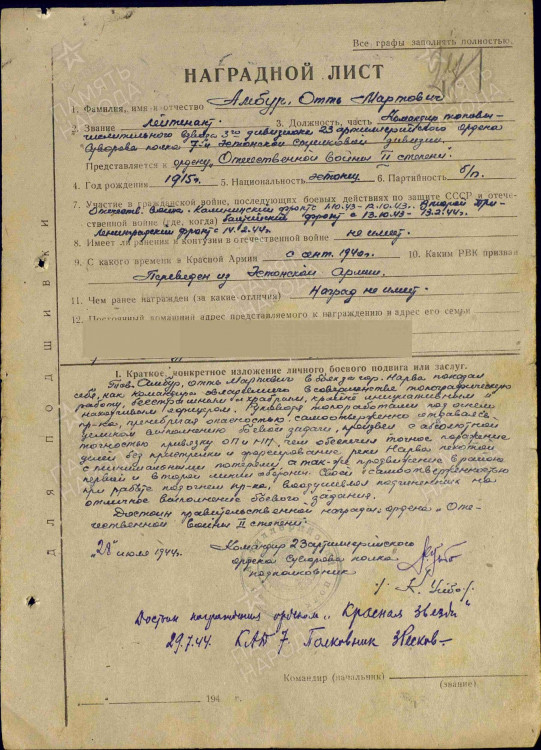 Все графы заполнять полностью.
НАГРАДНОЙ ЛИСТ
1. Фамилия, имя и отчество Амбур, Отть Мартович
2. Звание лейтенант. 3. Должность, часть Командир топовы-
числительного взвода 3го дивизиона 23 артиллерийского ордена
Суворова полка 7-й Эстонской Стрелковой дивизии
Представляется к ордену „Отечественной войны II степени“.
4. Год рождения 1915г. 5. Национальность эстонец 6. Партийность б/п.
7. Участие в гражданской войне, последующих боевых действиях по защите СССР и отече-
ственной войне (где, когда) Отечеств. война. Калининский фронт с 1.10.43 - 12.10.43. Второй При-
балтийский фронт с 13.10.43 - 13.2.44г.
Ленинградский фронт с 14.2.44г.
8. Имеет ли ранения и контузии в отечественной войне не имеет.
9. С какого времени в Красной Армии с сент. 1940г. 10. Каким РВК призван
Переведен из Эстонской Армии.
11. Чем ранее награжден (за какие отличия) Наград не имеет.
12. Постоянный домашний адрес представляемого к награждению и адрес его семьи
I. Краткое, конкретное изложение личного боевого подвига или заслуг.
Тов. Амбур, Отть Мартович в боях за гор. Нарва показал
себя, как командир овладевший в совершенстве топографическую
работу, бесстрашным и храбрым, крайне инициативным и
находчивым офицером. Руководя топоработами под огнем
пр-ка, пренебрегая опасностью, самоотверженно
выполнению боевой задачи, произвел с абсолютной
точностью привязку ОП и НП, чем обеспечил точное поражение
целей без пристрелки и форсирование реки Нарва пехотой
с минимальными потерями, а так-же продвижение
первой и второй линии обороны. Своей самоотверженностью
при работе под огнем пр-ка, воодушевлял подчиненных на
отличное выполнение боевого задания.
Достоин правительственной награды ордена „Оте-
чественной войны II степени“.
„28“ июля 1944г. Командир 23 артиллерийского
ордена Суворова полка
подполковник
/ К. Уйбо /
Достоин награждения орденом „Красная Звезда“
29.7.44. КАД 7 Полковник
Командир (начальник)
(звание)
194 г.
ДЛЯ ПОДШИВКИ
ПАМЯТЬ НАРОДА